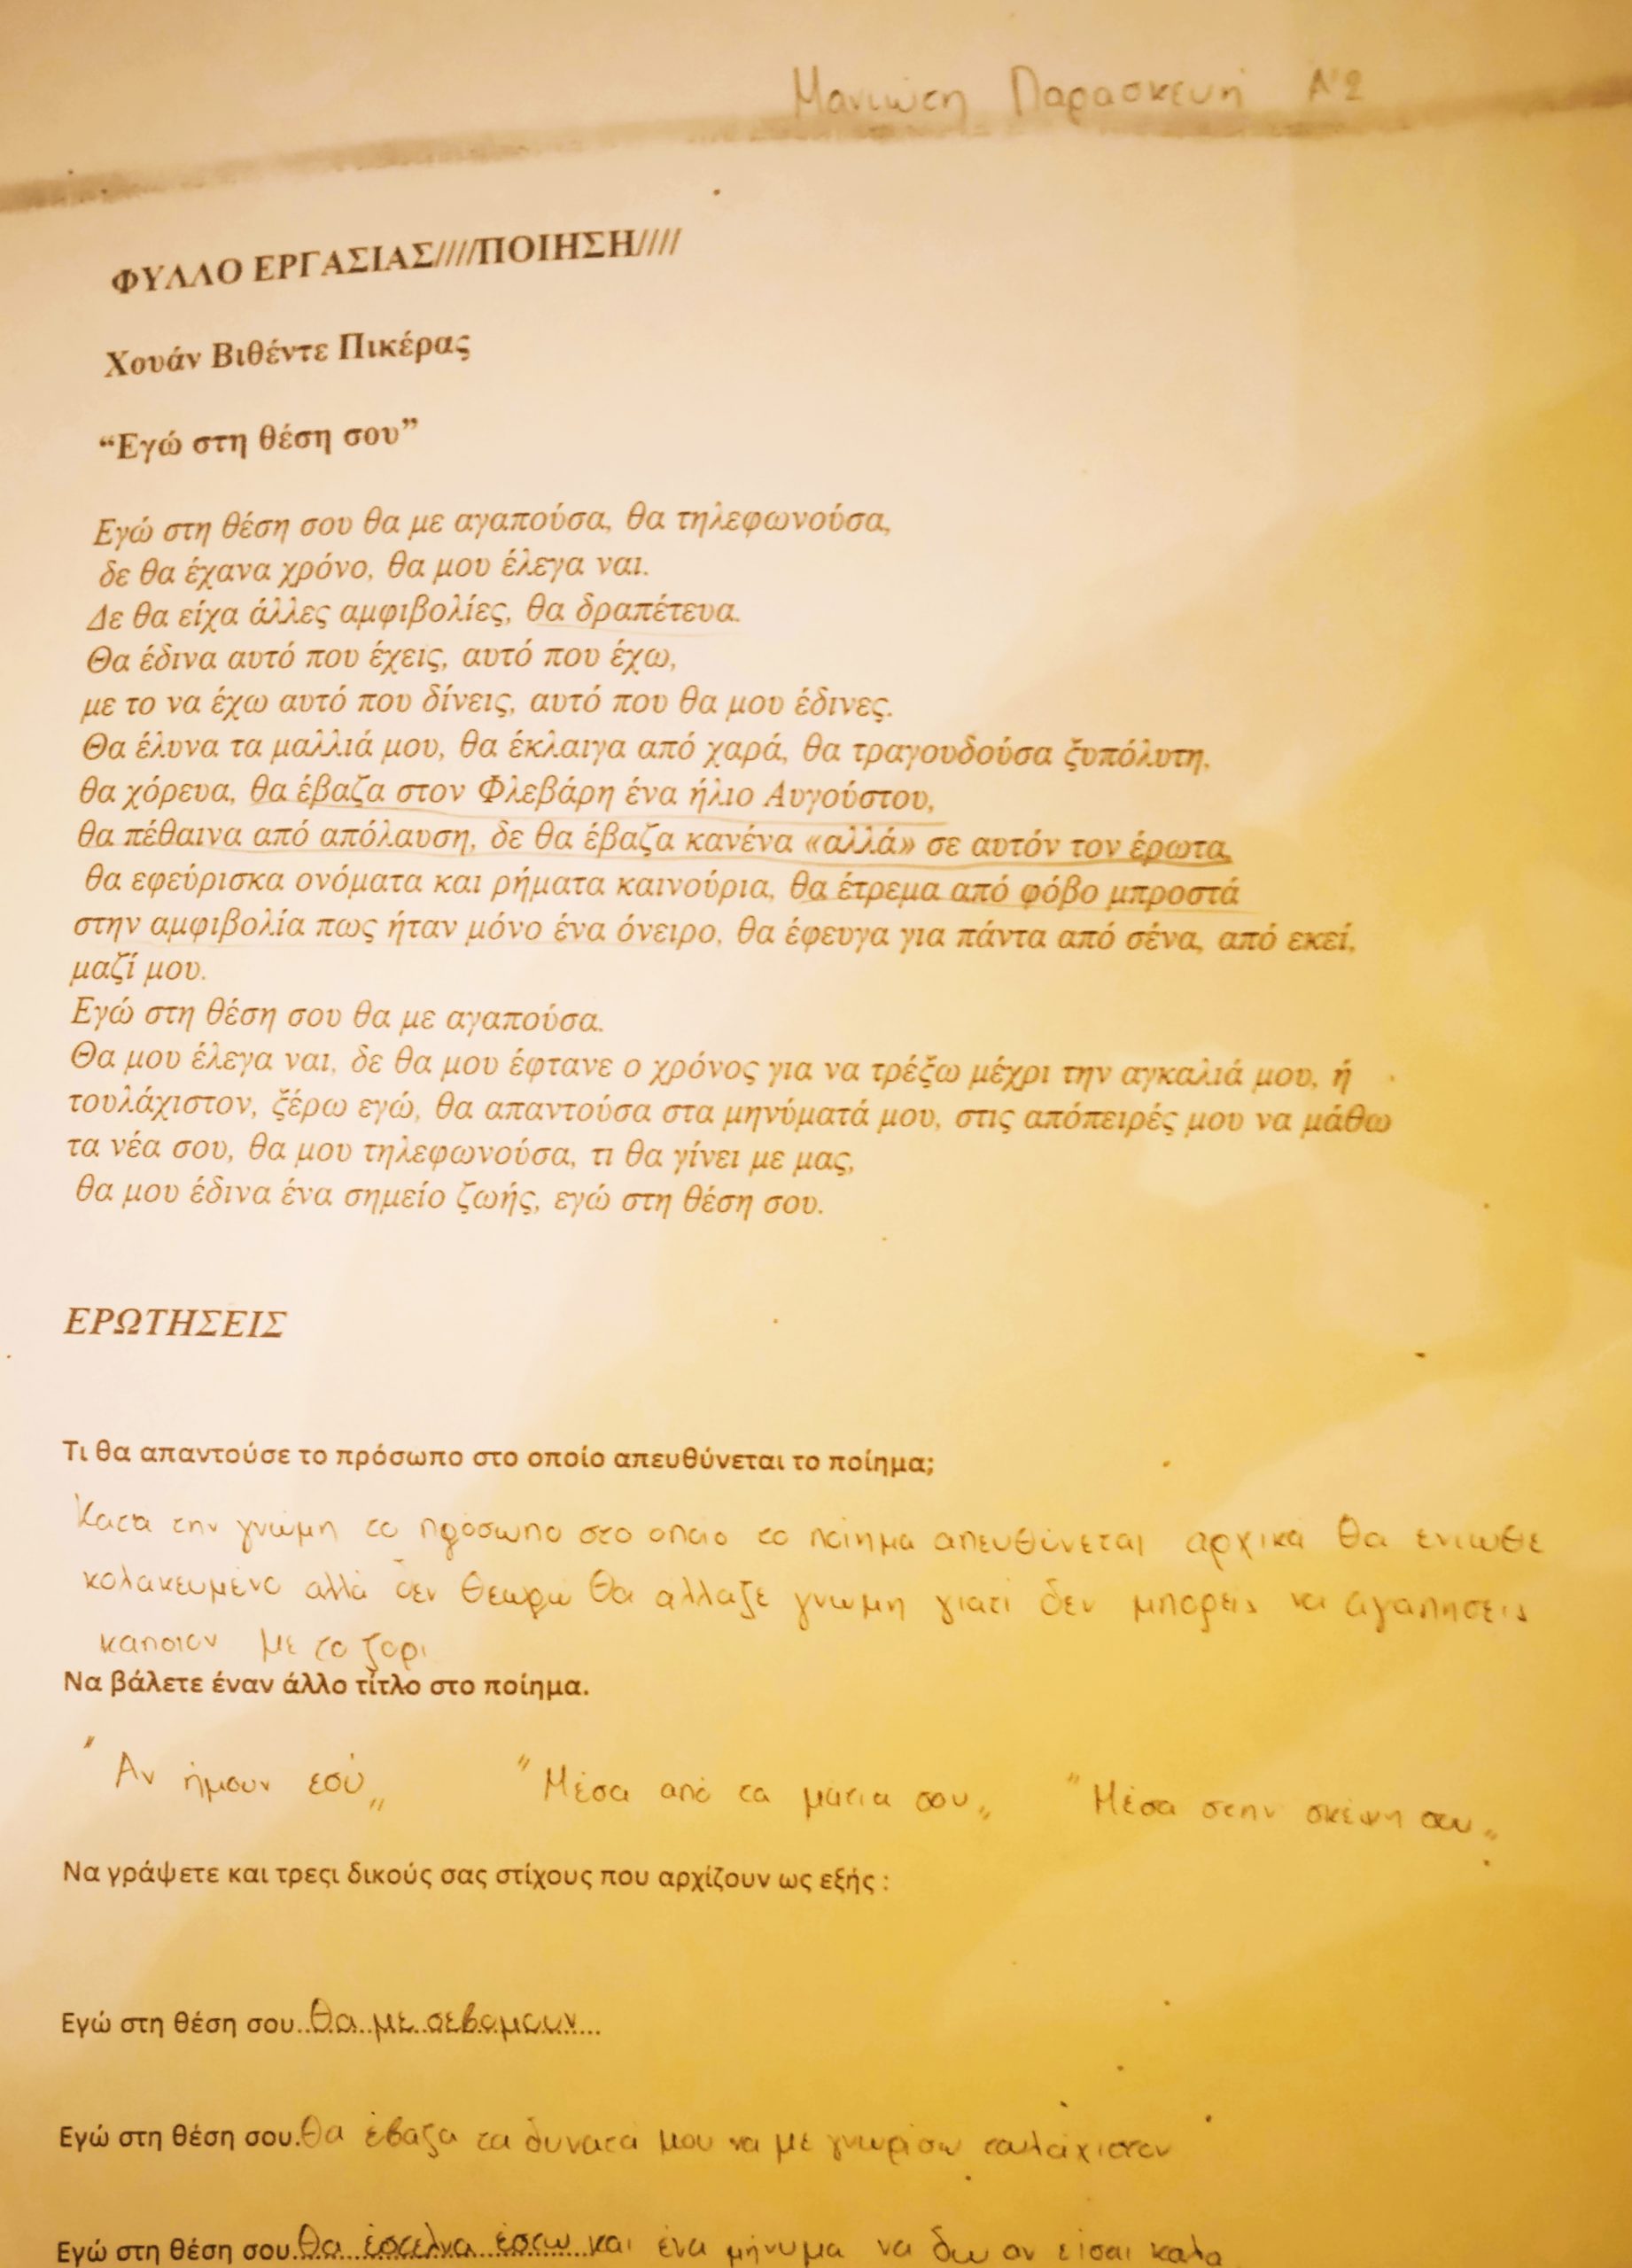 Μανιώτη Παρασκευή Α'2
ΦΥΛΛΟ ΕΡΓΑΣΙΑΣ////ΠΟΙΗΣΗ////
Χουάν Βιθέντε Πικέρας
“Εγώ στη θέση σου”
Εγώ στη θέση σου θα με αγαπούσα, θα τηλεφωνούσα,
δε θα έχανα χρόνο, θα μου έλεγα ναι.
Δε θα είχα άλλες αμφιβολίες, θα δραπέτευα.
Θα έδινα αυτό που έχεις, αυτό που έχω,
με το να έχω αυτό που δίνεις, αυτό που θα μου έδινες.
Θα έλυνα τα μαλλιά μου, θα έκλαιγα από χαρά, θα τραγουδούσα ξυπόλυτη,
θα χόρευα, θα έβαζα στον Φλεβάρη ένα ήλιο Αυγούστου,
θα πέθαινα από απόλαυση, δε θα έβαζα κανένα «αλλά» σε αυτόν τον έρωτα,
θα εφεύρισκα ονόματα και ρήματα καινούρια, θα έτρεμα από φόβο μπροστά
στην αμφιβολία πως ήταν μόνο ένα όνειρο, θα έφευγα για πάντα από σένα, από εκεί,
μαζί μου.
Εγώ στη θέση σου θα με αγαπούσα.
Θα μου έλεγα ναι, δε θα μου έφτανε ο χρόνος για να τρέξω μέχρι την αγκαλιά μου, ή
τουλάχιστον, ξέρω εγώ, θα απαντούσα στα μηνύματά μου, στις απόπειρές μου να μάθω
τα νέα σου, θα μου τηλεφωνούσα, τι θα γίνει με μας,
θα μου έδινα ένα σημείο ζωής, εγώ στη θέση σου.
ΕΡΩΤΗΣΕΙΣ
Τι θα απαντούσε το πρόσωπο στο οποίο απευθύνεται το ποίημα;
Κατά την γνώμη το πρόσωπο στο οποίο το ποίημα απευθύνεται αρχικά θα ένιωθε
κολακευμένο αλλά δεν θεωρώ θα αλλαζε γνωμη γιατί δεν μπορείς να αγαπησεις
καποιον με το ζορι
Να βάλετε έναν άλλο τίτλο στο ποίημα.
"Αν ήμουν εσύ„ "Μέσα από τα μάτια σου„ "Μέσα στην σκέψη σου„
Να γράψετε και τρεςι δικούς σας στίχους που αρχίζουν ως εξής :
Εγώ στη θέση σου..θα με σεβομουν...
Εγώ στη θέση σου.θα έβαζα τα δυνατά μου να με γνωρίσω τουλάχιστον
Εγώ στη θέση σου.θα έστελνα έστω και ένα μήνυμα να δω αν είσαι καλα